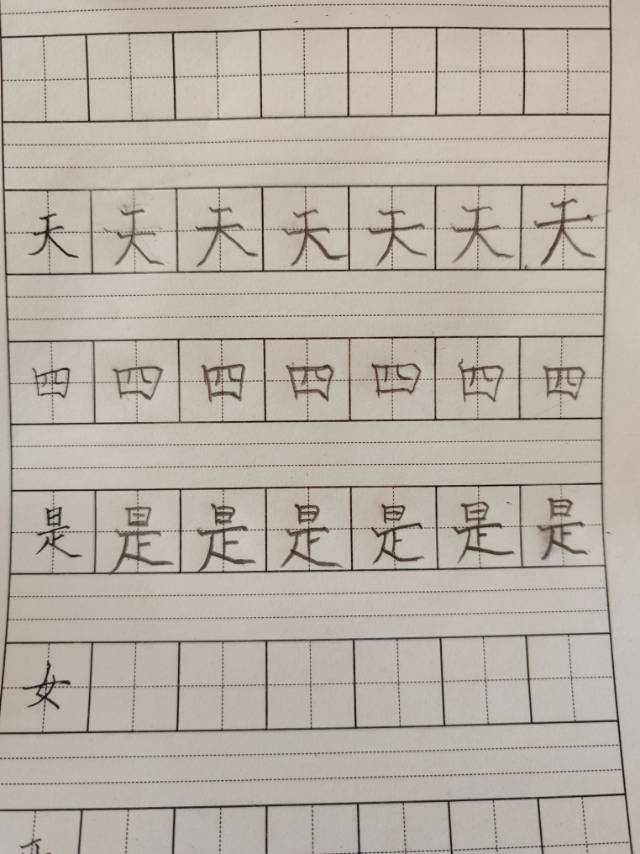 天天天天天天天
四四四四四四四
是是是是是是是
女